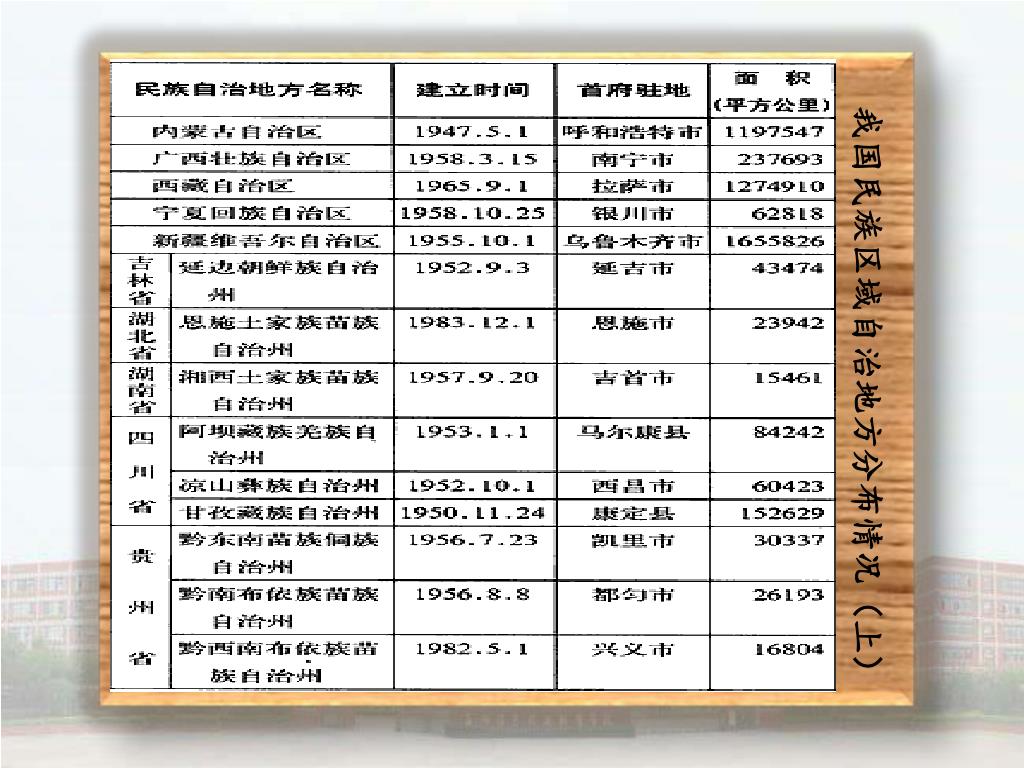 民族自治地方名称 建立时间 首府驻地 面 积
(平方公里)
内蒙古自治区 1947.5.1 呼和浩特市 1197547
广西壮族自治区 1958.3.15 南宁市 237693
西藏自治区 1965.9.1 拉萨市 1274910
宁夏回族自治区 1958.10.25 银川市 62818
新疆维吾尔自治区 1955.10.1 乌鲁木齐市 1655826
吉林省 延边朝鲜族自治 1952.9.3 延吉市 43474
州
湖北省 恩施土家族苗族 1983.12.1 恩施市 23942
自治州
湖南省 湘西土家族苗族 1957.9.20 吉首市 15461
自治州
四川省 阿坝藏族羌族自 1953.1.1 马尔康县 84242
治州
凉山彝族自治州 1952.10.1 西昌市 60423
甘孜藏族自治州 1950.11.24 康定县 152629
贵州省 黔东南苗族侗族 1956.7.23 凯里市 30337
自治州
黔南布依族苗族 1956.8.8 都匀市 26193
自治州
黔西南布依族苗 1982.5.1 兴义市 16804
族自治州
我国民族区域自治地方分布情况（上）